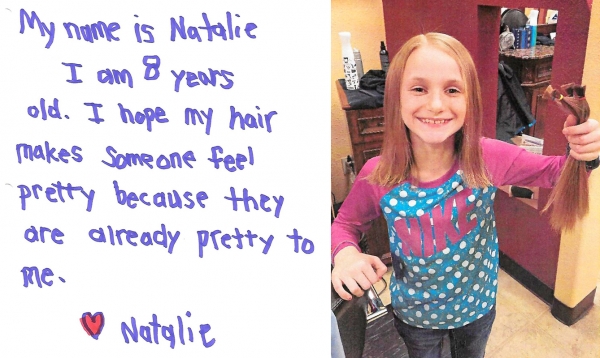 My name is Natalie
I am 8 years
old. I hope my hair
makes someone feel
pretty because they
are already pretty to
me.
♥ Natalie
NIKE